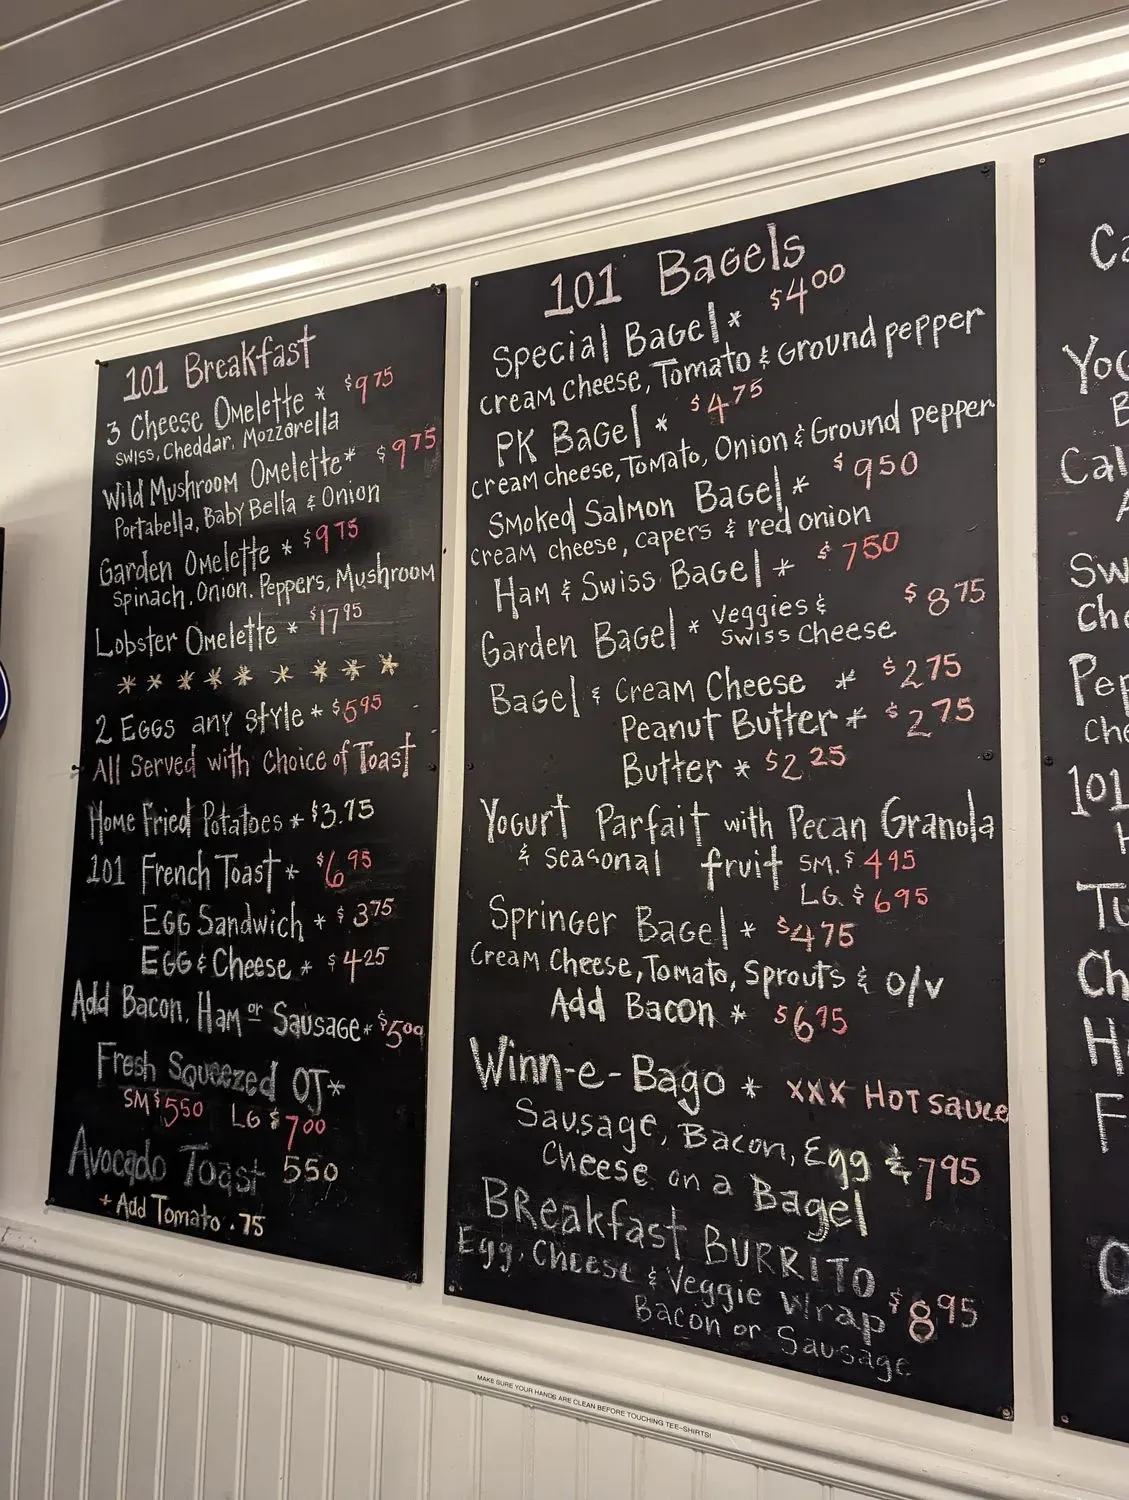 101 Breakfast
3 Cheese Omelette * $9 75
Swiss, Cheddar, Mozzarella
Wild Mushroom Omelette * $9 75
Portabella, Baby Bella & Onion
Garden Omelette * $9 75
Spinach, Onion, Peppers, Mushroom
Lobster Omelette * $17 95
* * * * * * * *
2 Eggs any style * $5 95
All Served with Choice of Toast
Home Fried Potatoes * $3.75
101 French Toast * $6 95
Egg Sandwich * $3 75
Egg & Cheese * $4 25
Add Bacon, Ham or Sausage * $5 00
Fresh Squeezed OJ *
SM $5 50 LG $7 00
Avocado Toast 5 50
+ Add Tomato .75
101 Bagels
Special Bagel * $4 00
Cream Cheese, Tomato & Ground pepper
PK Bagel * $4 75
Cream cheese, Tomato, Onion & Ground pepper
Smoked Salmon Bagel * $9 50
Cream cheese, capers & red onion
Ham & Swiss Bagel * $7 50
Garden Bagel * Veggies & Swiss Cheese $8 75
Bagel & Cream Cheese * $2 75
Peanut Butter * $2 75
Butter * $2 25
Yogurt Parfait with Pecan Granola
& seasonal fruit SM. $4 95
LG $6 95
Springer Bagel * $4 75
Cream Cheese, Tomato, Sprouts & o/v
Add Bacon * $6 75
Winn-e-Bago * XXX Hot Sauce
Sausage, Bacon, Egg & 7 95
Cheese on a Bagel
Breakfast BURRITO
Egg, Cheese & Veggie Wrap $8 95
Bacon or Sausage
MAKE SURE YOUR HANDS ARE CLEAN BEFORE TOUCHING TEE-SHIRTS!
101